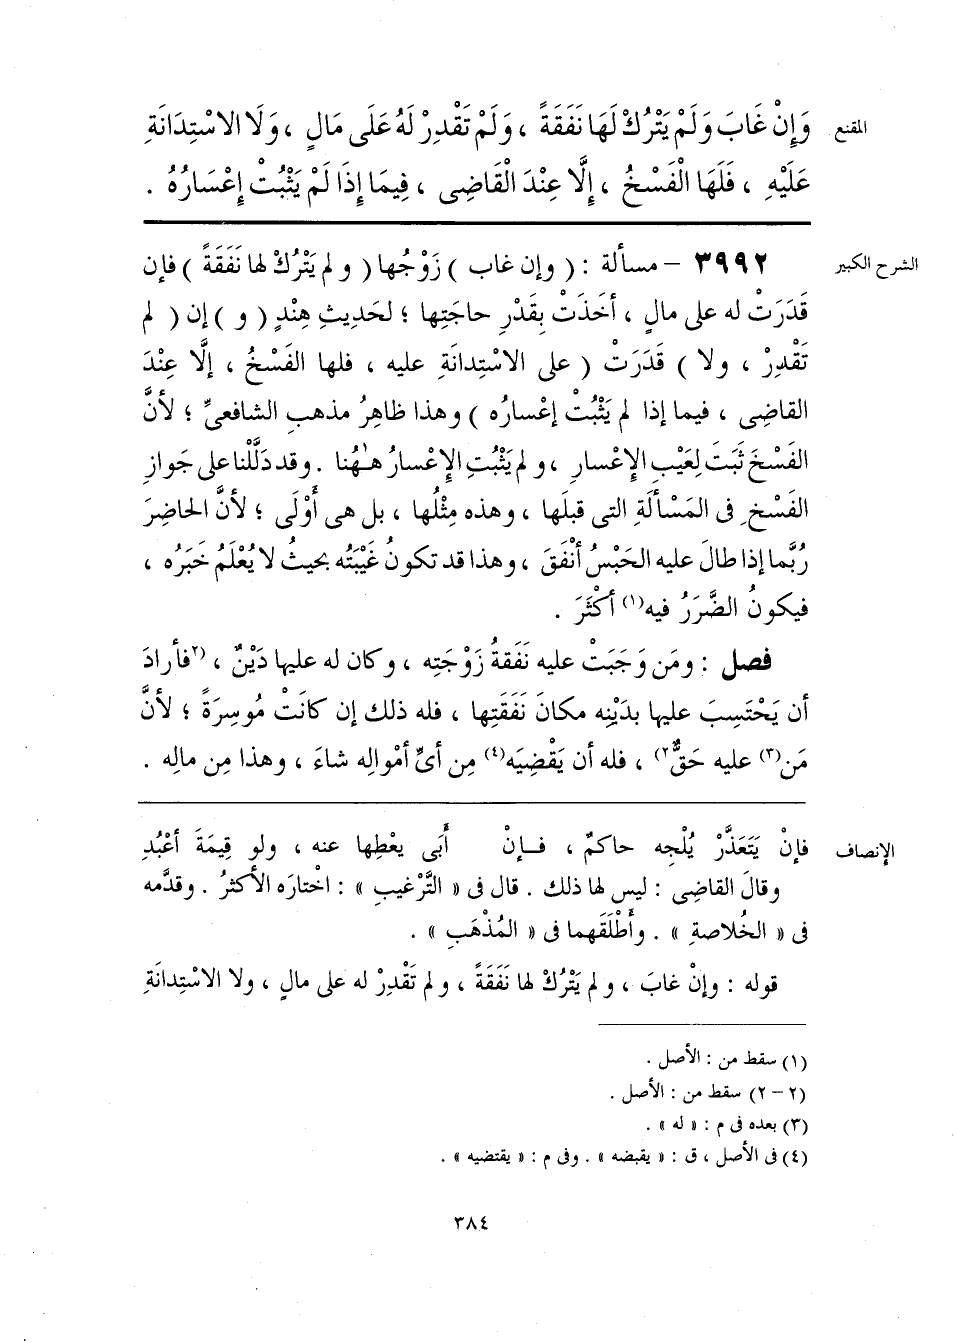 المقنع
وَإِنْ غَابَ وَلَمْ يَتْرُكْ لَهَا نَفَقَةً ، وَلَمْ تَقْدِرْ لَهُ عَلَى مَالٍ ، وَلَا الاسْتِدَانَةِ
عَلَيْهِ ، فَلَهَا الْفَسْخُ ، إِلَّا عِنْدَ الْقَاضِى ، فِيمَا إِذَا لَمْ يَثْبُتْ إِعْسَارُهُ .
الشرح الكبير
٣٩٩٢ – مسألة : ( وإن غاب ) زَوْجُها ( ولم يَتْرُكْ لها نَفَقَةً ) فإن
قَدَرَتْ له على مالٍ ، أخَذَتْ بقَدْرِ حاجَتِها ؛ لحَديثِ هِنْدٍ ( و ) إن ( لم
تَقْدِرْ ، ولا ) قَدَرَتْ ( على الاسْتِدانَةِ عليه ، فلها الفَسْخُ ، إلَّا عِنْدَ
القاضِى ، فيما إذا لم يَثْبُتْ إعْسارُه ) وهذا ظاهِرُ مذهبِ الشافعىِّ ؛ لأنَّ
الفَسْخَ ثَبَتَ لِعَيْبِ الإِعْسارِ ، ولم يَثْبُتِ الإِعْسارُ هـٰهُنا . وقد دَلَّلْنا على جَوازِ
الفَسْخِ فى المَسْألَةِ التى قبلَها ، وهذه مِثْلُها ، بل هى أَوْلَى ؛ لأنَّ الحاضِرَ
رُبَّما إذا طالَ عليه الحَبْسُ أنْفَقَ ، وهذا قد تكونُ غَيْبَتُه بحيثُ لا يُعْلَمُ خَبَرُه ،
فيكونُ الضَّرَرُ فيه(١) أكْثَرَ .
فصل : ومَن وَجَبَتْ عليه نَفَقةُ زَوْجَتِه ، وكان له عليها دَيْنٌ ، (٢فأرادَ
أن يَحْتَسِبَ عليها بدَيْنِه مكانَ نَفَقَتِها ، فله ذلك إن كانَتْ مُوسِرَةً ؛ لأنَّ
مَن(٣) عليه حَقٌّ٢) ، فله أن يَقْضِيَه(٤) مِن أىِّ أمْوالِه شاءَ ، وهذا مِن مالِه .
الإنصاف
فإنْ يَتَعَذَّرْ يُلْجِه حاكمٌ ، فـإنْ أَبَى يعْطِها عنه ، ولو قِيمَةَ أعْبُدِ
وقالَ القاضِى : ليس لها ذلك . قال فى « التَّرْغيبِ » : اخْتارَه الأكْثَرُ . وقدَّمه
فى « الخُلاصةِ » . وأَطْلَقَهما فى « المُذْهَبِ » .
قوله : وإنْ غابَ ، ولم يَتْرُكْ لها نَفَقَةً ، ولم تَقْدِرْ له على مالٍ ، ولا الاسْتِدانَةِ
(١) سقط من : الأصل .
(٢ – ٢) سقط من : الأصل .
(٣) بعده فى م : « له » .
(٤) فى الأصل ، ق : « يقبضه » . وفى م : « يقتضيه » .
٣٨٤